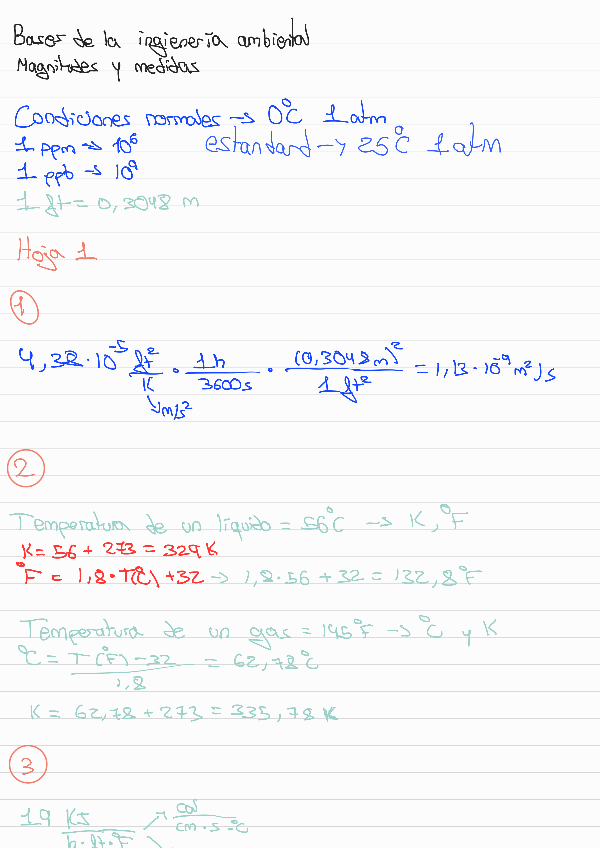 Bases de la ingienería ambiental
Magnitudes y medidas
Condiciones normales → 0°C 1 atm
1 ppm → 10⁶ estandard → 25°C 1 atm
1 ppb → 10⁹
1 ft = 0,3048 m
Hoja 1
1
4,32·10⁻⁵ ft²/h · 1h/3600s · (0,3048m)²/1 ft² = 1,13·10⁻⁹ m²/s
↘ m/s²
2
Temperatura de un líquido = 56°C → K, °F
K = 56 + 273 = 329 K
°F = 1,8 · T(°C) + 32 → 1,8·56 + 32 = 132,8°F
Temperatura de un gas = 145°F → °C y K
°C = T(°F) - 32 / 1,8 = 62,78°C
K = 62,78 + 273 = 335,78 K
3
19 KJ / h·ft·°F → cal / cm·s·°C